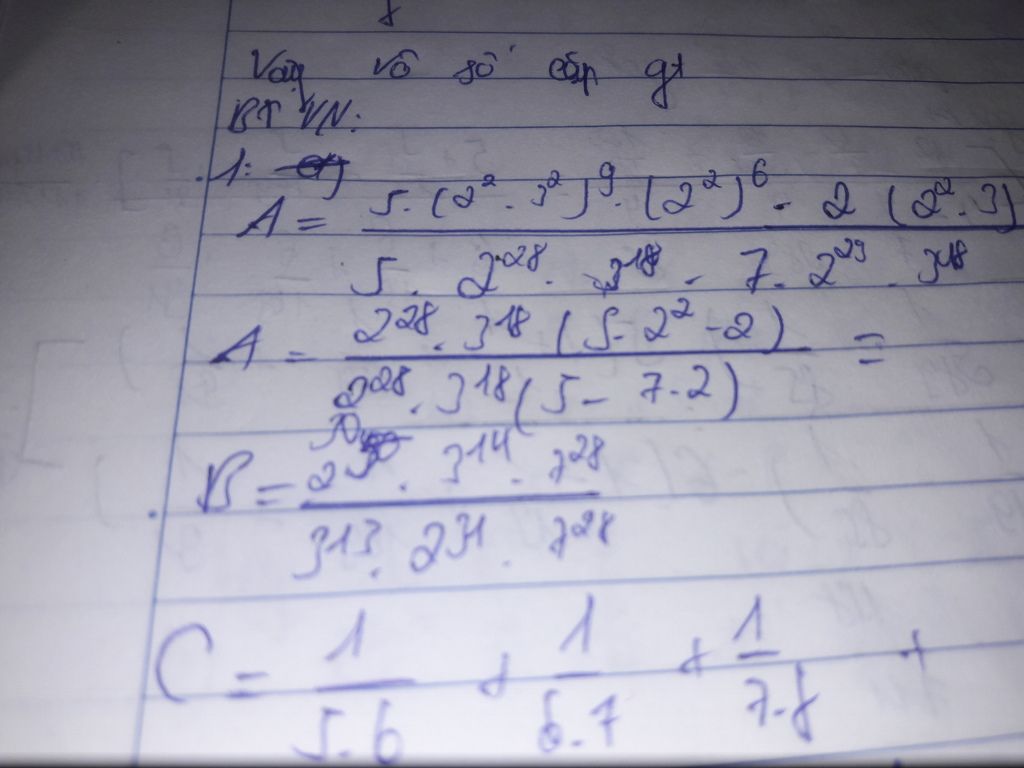 Vậy vô số cặp gt
BTVN:
1:
A = 5.(2² . 3²)⁹ . (2²)⁶ - 2 (2² . 3) / 5 . 2²⁸ . 3¹⁸ - 7 . 2²⁹ . 3¹⁸
A = 2²⁸ . 3¹⁸ (5 . 2² - 2) / 2²⁸ . 3¹⁸ (5 - 7 . 2) =
B = 2³⁰ . 3¹⁴ . 7²⁸ / 3¹³ . 2³¹ . 7²⁸
C = 1 / 5.6 + 1 / 6.7 + 1 / 7.8 +